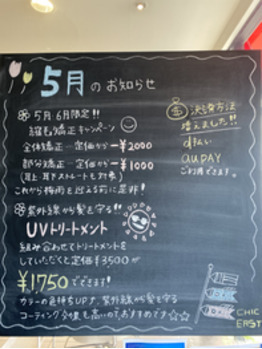 5月のお知らせ
5月・6月限定!!
縮毛矯正キャンペーン
全体矯正…定価から—¥2000
部分矯正…定価から—¥1000
(耳上・耳下ストレートも対象)
これから梅雨を迎える前に是非!
紫外線から髪を守る!!
UVトリートメント
組み合わせてトリートメントを
していただくと定価¥3500が
¥1750でできます!
カラーの色持ちUP、紫外線から髪を守る
コーティング効果も高いのでおすすめです☆☆
決済方法
増えました!!
d払い
auPAY
ご利用できます。
CHIC
EAST